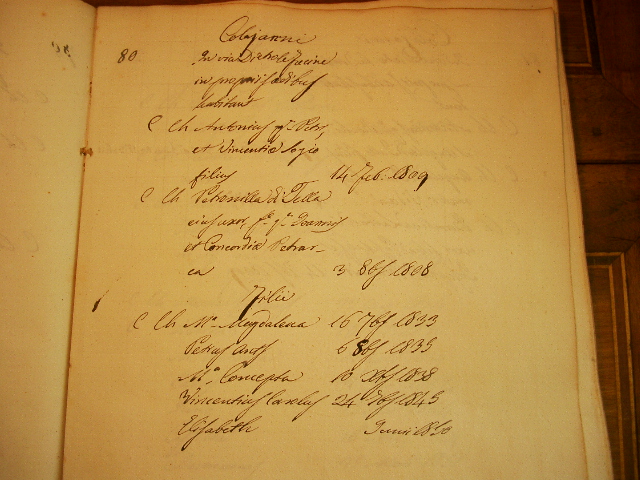 Colajanni
80 In via Dietro le
in propriis ædibus
habitant
C Ch Antonius qm Petri
et Vincentia
filius 14 Feb. 1809
C Ch Petronilla di Tella
eius uxor, fa. qm Joannis
et Concordia Petrar-
ca 3 8bs 1808
Filii
C Ch Ma. Magdalena 16 7bs 1833
Petrus Ants 6 8bs 1835
Ma. Concepta 10 Xbs 1838
Vincentius Carolus 24 7bs 1845
Elisabeth Junii 1850